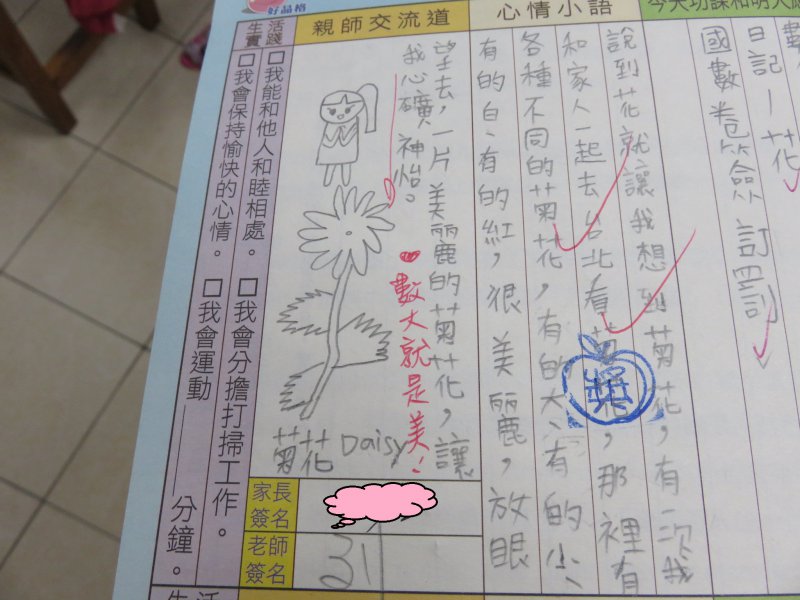 今天功課和明天應
數
日記—花
國數卷簽訂罰
心情小語
說到花就讓我想到菊花，有一次我
和家人一起去台北看菊花，那裡有
各種不同的菊花，有的大、有的小、
有的白、有的紅，狠美麗，放眼
獎
親師交流道
望去，一片美麗的菊花，讓
我心礦神怡。
數大就是美！
菊花 Daisy
家長
簽名
老師
簽名
31
好品格
生活
實踐
□我能和他人和睦相處。 □我會分擔打掃工作。
□我會保持愉快的心情。 □我會運動____分鐘。
生活